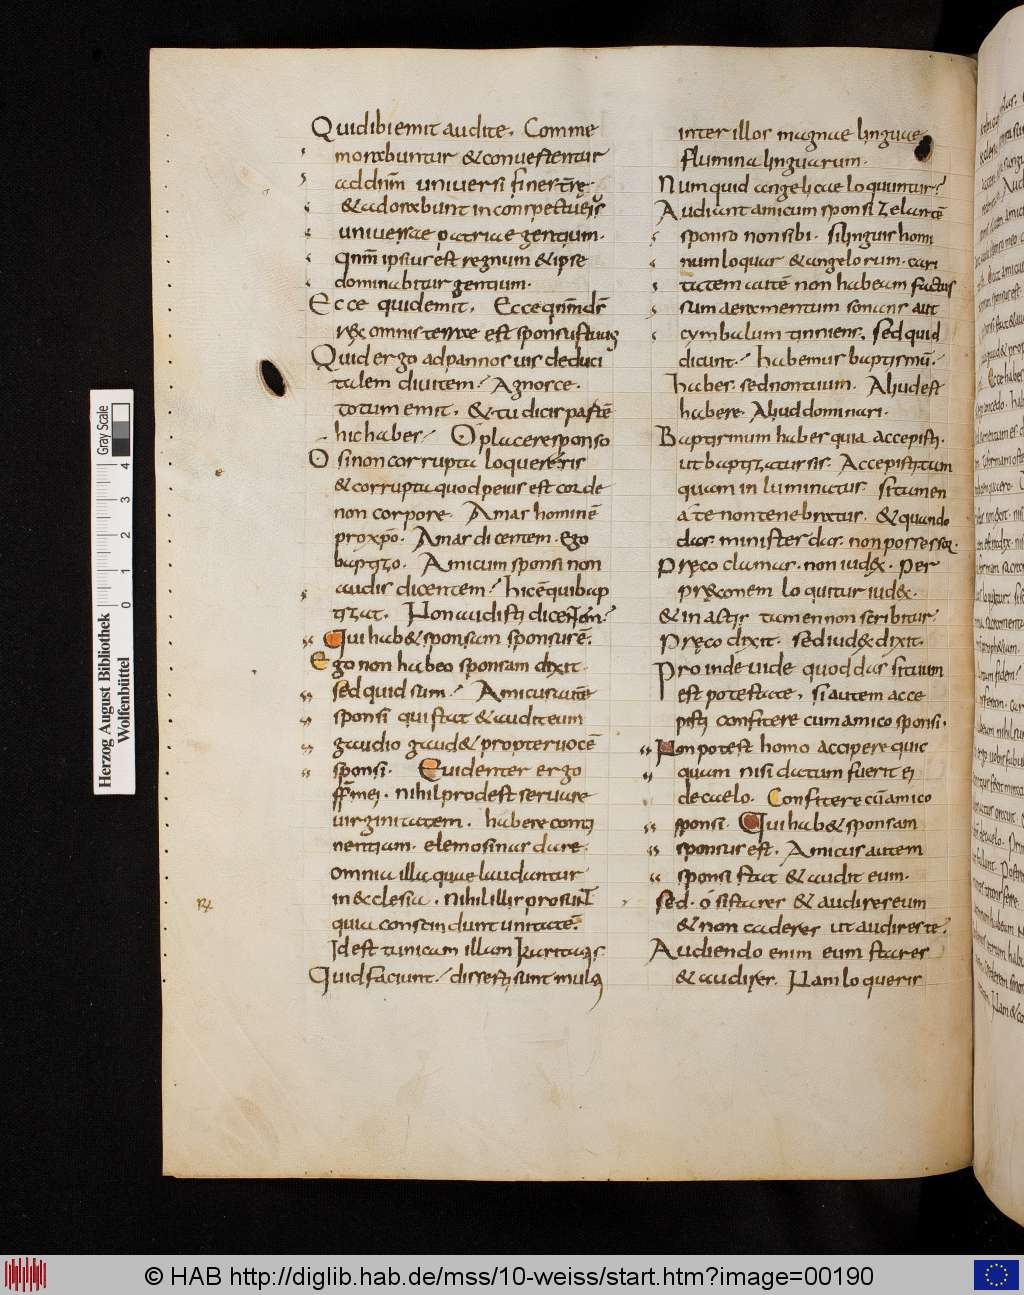 Quid ibi emit audite. Comme
morabuntur & conuertentur
ad dn̄m uniuersi fines tr̄ę
& adorabunt in conspectu eiꝰ
uniuersae patriae gentium.
qnm̄ ipsius est regnum & ipse
dominabitur gentium.
Ecce quid emit. Ecce qnm̄ dn̄s
rex omnis terrae est sponsus tuus
Quid ergo ad pannos uis deduci
talem diuitem? Agnosce.
totum emit. & tu dicis partē
hic habes? O placeres sponso
O si non corrupta loquereris
& corrupta quod peius est corde
non corpore. Amas hominē
pro xp̄o. Amas dicentem. ego
baptizo. Amicum sponsi non
audis dicentem? hic ē qui bap
tizat. Non audistis dicentem?
Qui hab& sponsam sponsus ē.
Ego non habeo sponsam dixit.
sed quid sum? Amicus autē
sponsi qui stat & audit eum
gaudio gaud& propter uocē
sponsi. Euidenter ergo
fr̄s mei. nihil prodest seruare
uirginitatem. habere conti
nentiam. elemosinas dare.
omnia illa quae laudantur
in ecclesia. nihil illis prosunt
quia conscindunt unitatē.
Id est tunicam illam karitatis
Quid faciunt? diserti sunt multi
inter illos magnae linguae
flumina linguarum.
Numquid angelicae loquuntur?
Audiant amicum sponsi zelantē
sponso non sibi. si linguis homi
num loquar & angelorum. cari
tatem autē non habeam factus
sum aeramentum sonans aut
cymbalum tinniens. Sed quid
dicunt? habemus baptismū.
habes. sed non tuum. Aliud est
habere. Aliud dominari.
Baptismum habes quia accepisti.
ut baptizatus sis. Accepisti tam
quam inluminatus. si tamen
a te non tenebratus. & quando
das. minister das. non possessor.
Pręco clamas. non iud&#x200B;ex. Per
pręconem loquitur iud&#x200B;ex.
& in actis tamen non scribitur.
Pręco dixit. sed iudex dixit.
Proinde uide quod das si tuum
est potestate. si autem acce
pisti confitere cum amico sponsi.
Non potest homo accipere quic
quam nisi datum fuerit ei
de caelo. Confitere cū amico
sponsi. Qui hab& sponsam
sponsus est. Amicus autem
sponsi stat & audit eum.
sed. o si stares & audires eum
& non caderes ut audires te?
Audiendo enim eum stares
& audires. Nam loqueris
Herzog August Bibliothek
Wolfenbüttel
0 1 2 3 4
Gray Scale
© HAB http://diglib.hab.de/mss/10-weiss/start.htm?image=00190